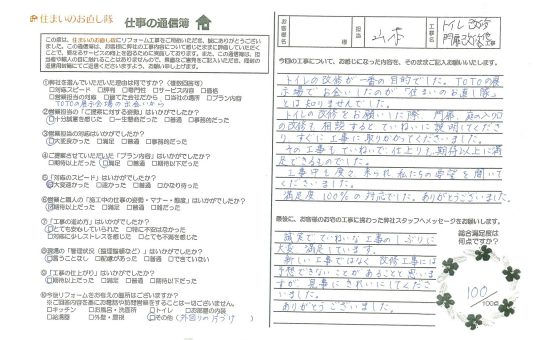 住まいのお直し隊
仕事の通信簿
この度は、住まいのお直し隊にリフォーム工事をご用命いただき、誠にありがとうございました。
①弊社を選んでいただいた理由は何ですか?(複数回答可)
□対応スピード □評判 □専門性 □サービス内容 □価格
□営業担当の対応 □建てた会社だから □当社の場所 □プラン内容
TOTOの展示会場の出会いから
②営業担当の「ご提案に対する姿勢」はいかがでしたか?
□十分誠意を感じた □一生懸命 □普通 □事務的だった
③営業担当の対応はいかがでしたか?
□大変良かった □満足 □普通 □事務的だった
④ご提案させていただいた「プラン内容」はいかがでしたか?
□期待以上だった □満足 □普通 □期待以下だった
⑤「対応のスピード」はいかがでしたか?
□大変速かった □速い □普通 □かなり待った
⑥営業と職人の「施工中の仕事の姿勢・マナー・態度」はいかがでしたか?
□期待以上だった □満足 □普通 □雑だった
⑦「工事の進め方」はいかがでしたか?
□とても安心していられた □特に不安はなかった
□対応に少しストレスを感じた □とても不満を感じた
⑧現場の「管理状況(整理整頓など)」はいかがでしたか?
□言うことなし □配慮があった □普通 □できていない
⑨「工事の仕上がり」はいかがでしたか?
□期待以上だった □満足 □普通 □期待以下だった
⑩今後リフォームをお考えの箇所はございますか?
※ご回答内容を基にお電話や訪問営業をすることは一切ございません。
□キッチン □お風呂・洗面所 □トイレ □お部屋の内装
□給湯器 □外壁・屋根 □その他(外回りの片づけ)
お客様名
担当
山本
工事名
トイレ改修
門扉改修
今回の工事について、お感じになった内容を、そのままご記入お願いいたします。
トイレの改修が一番の目的でした。TOTOの展
示場でお会いしたのが「住まいのお直し隊」
とは知りませんでした。
トイレの改修をお願いした際、門扉、庭の入り口
の改修も相談するとていねいに説明してくださ
り、すぐに工事に取りかかってくださいました。
その工事もていねいで、仕上りも期待以上に満
足できるものでした。
工事中も度々来られ私たちの要望を聞いて
くださいました。
満足度100%の対応でした。ありがとうございました。
最後に、お客様のお宅の工事に携わった弊社スタッフへメッセージをお願いします。
誠実でていねいな工事のしぶりに
大変満足しています。
新しい工事ではなく改修工事には
予想できないことがあることと思いま
すが見事にきれいにしてくださ
いました。
ありがとうございました。
総合満足度は
何点ですか?
100/100点